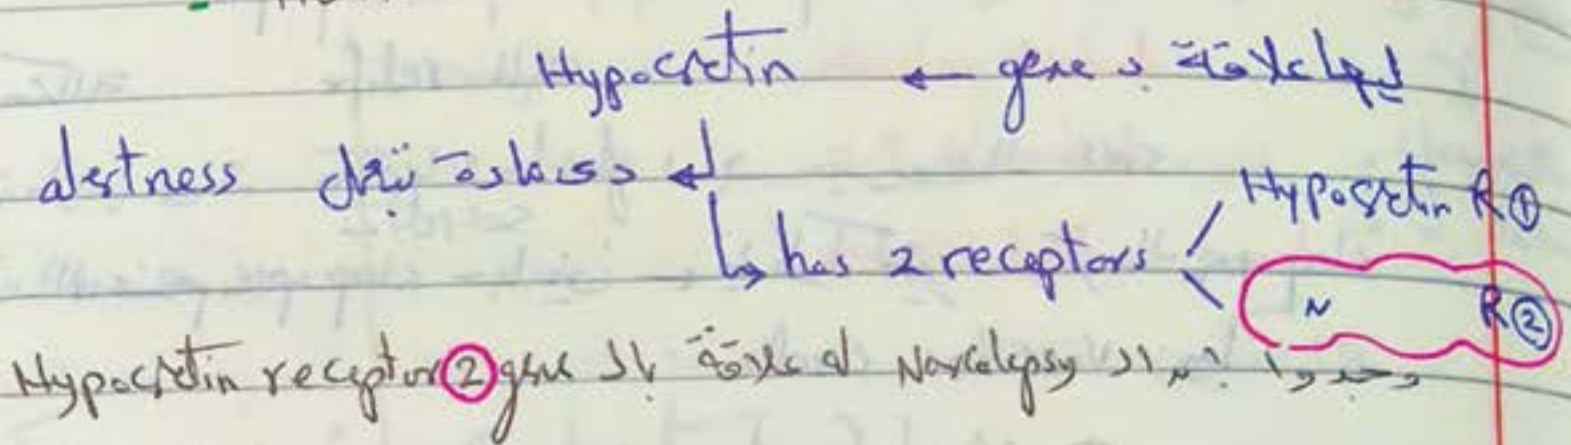 ليها علاقة بـ gene ← Hypocretin
↵ دى مادة بتقلل alertness
↳ has 2 receptors
Hypocretin R①
〃 R②
وجدوا ان الـ Narcolepsy له علاقة بالـ Hypocretin receptor ② gene